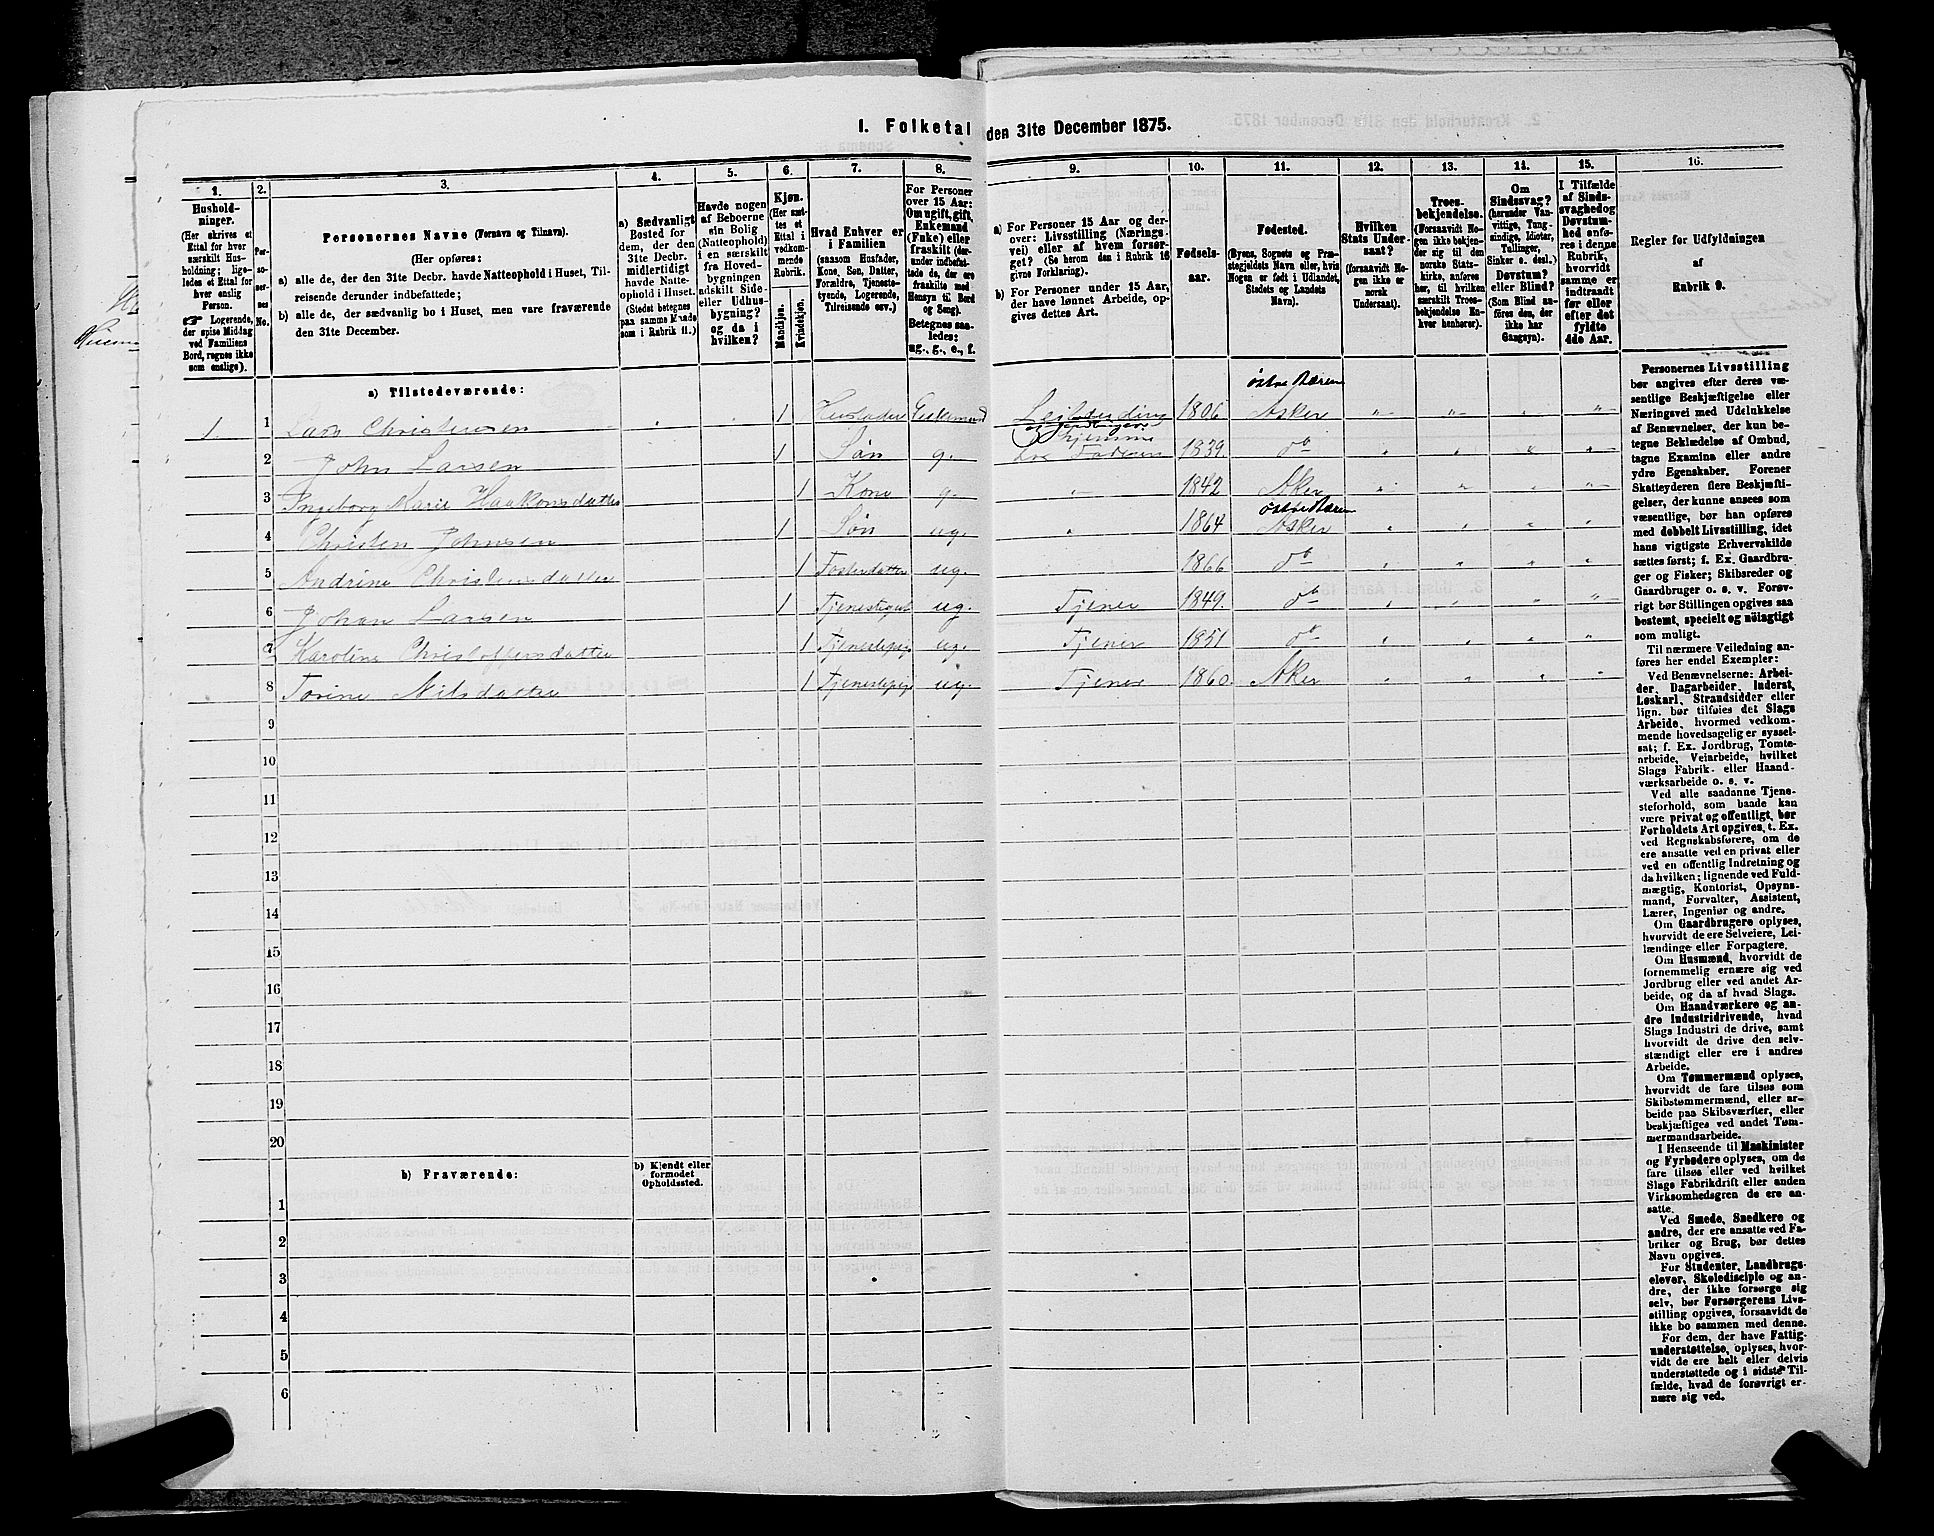 I. Folketal den 31te December 1875.
1.
2.
3.
4.
5.
6.
7.
8.
9.
10.
11.
12.
13.
14.
15.
16.
Hushold-
ninger.
(Her skrives et
Ettal for hver
særskilt Hus-
holdning; lige-
ledes et Ettal for
hver enslig
Person.
☞ Logerende,
der spise Middag
ved Familiens
Bord, regnes ikke
som enslige).
Per-
so-
ner-
nes
No.
Personernes Navne (Fornavn og Tilnavn).
(Her opføres:
a) alle de, der den 31te Decbr. havde Natteophold i Huset, Til-
reisende derunder indbefattede;
b) alle de, der sædvanlig bo i Huset, men vare fraværende
den 31te December.
a) Sædvanligt
Bosted for
dem, der den
31te Decbr.
midlertidigt
havde Natte-
ophold i Huset.
(Stedet betegnes
paa samme Maade
som i Rubrik 11.)
Havde nogen
af Beboerne
sin Bolig
(Natteophold)
i en særskilt
fra Hoved-
bygningen
adskilt Side-
eller Udhus-
bygning?
og da i
hvilken?
Kjøn.
(Her sæt-
tes et
Ettal i
vedkom-
mende
Rubrik.
Mandkjøn.
Kvindekjøn.
Hvad Enhver er
i Familien
(saasom Husfader,
Kone, Søn, Datter,
Forældre, Tjeneste-
tyende, Logerende,
Tilreisende osv.)
For Personer
over 15 Aar:
Om ugift, gift,
Enkemand
(Enke) eller
fraskilt (der-
under indbefat-
tede de, der ere
fraskilte med
Hensyn til Bord
og Seng).
Betegnes saa-
ledes:
ug., g., e., f.
a) For Personer 15 Aar og der-
over: Livsstilling (Nærings-
vei) eller af hvem forsør-
get? (Se herom den i Rubrik 16
givne Forklaring).
b) For Personer under 15 Aar,
der have lønnet Arbeide, op-
gives dettes Art.
Fødsels-
aar.
Fødested.
(Byens, Sognets og Præ-
stegjeldets Navn eller, hvis
Nogen er født i Udlandet,
Stedets og Landets
Navn).
Hvilken
Stats Under-
saat?
(forsaavidt No-
gen ikke er
norsk
Undersaat).
Troes-
bekjendelse.
(Forsaavidt No-
gen ikke bekjen-
der sig til den
norske Stats-
kirke, anføres
her, til hvilken
særskilt Troes-
bekjendelse En-
hver henhører).
Om
Sindssvag?
(herunder Van-
vittige, Tung-
sindige, Idioter,
Tullinger,
Sinker o. desl.)
Døvstum?
eller Blind?
(Som Blind an-
føres den, der
ikke har
Gangsyn).
I Tilfælde
af Sinds-
svaghed og
Døvstum-
hed anfø-
res i denne
Rubrik,
hvorvidt
samme er
indtraadt
før eller
efter det
fyldte
4de Aar.
Regler for Udfyldningen
af
Rubrik 9.
a) Tilstedeværende:
1. 1 Lars Christensen 1 Husfader Enkemand Leilænding 1806 Asker østre Bærum
2 John Larsen 1 Søn g. 1839. do
3 Ingeborg Marie Haakonsdatter 1 Kone g. 1842 Aker
4 Christen Johnsen 1 Søn ug. 1864 Asker østre Bærum
5 Andrine Christensdatter 1 Fosterdatter ug. 1866 do
6 Johan Larsen 1 Tjenestegut ug. Tjener 1849. do
7 Karoline Christoffersdatter 1 Tjenestepige ug. Tjener 1851 do
8 Torine Nilsdatter 1 Tjenestepige ug. Tjener 1860. Aker
9
10
11
12
13
14
15
16
17
18
19
20
b) Fraværende:
b) Kjendt eller
formodet
Opholdssted.
1
2
3
4
5
6
Personernes Livsstilling
bør angives efter deres væ-
sentlige Beskjæftigelse eller
Næringsvei med Udelukkelse
af Benævnelser, der kun be-
tegne Beklædelse af Ombud,
tagne Examina eller andre
ydre Egenskaber. Forener
Skatteyderen flere Beskjæfti-
gelser, der kunne ansees som
væsentlige, bør han opføres
med dobbelt Livsstilling, idet
hans vigtigste Erhvervskilde
sættes først; f. Ex. Gaardbru-
ger og Fisker; Skibsreder og
Gaardbruger o. s. v. Forøv-
rigt bør Stillingen opgives saa
bestemt, specielt og nøiagtigt
som muligt.
Til nærmere Veiledning an-
føres her endel Exempler:
Ved Benævnelserne: Arbei-
der, Dagarbeider, Inderst,
Løskarl, Strandsidder eller
lign. bør tilføies det Slags
Arbeide, hvormed vedkom-
mende hovedsagelig er syssel-
sat; f. Ex. Jordbrug, Tomte-
arbeide, Veiarbeide, hvilket
Slags Fabrik- eller Haand-
værksarbeide o. s. v.
Ved alle saadanne Tjene-
steforhold, som baade kan
være privat og offentligt, bør
Forholdets Art opgives, t. Ex.
ved Regnskabsførere, om de
ere ansatte ved en privat eller
ved en offentlig Indretning og
da hvilken; lignende ved Fuld-
mægtig, Kontorist, Opsyns-
mand, Forvalter, Assistent,
Lærer, Ingeniør og andre.
Om Gaardbrugere oplyses,
hvorvidt de ere Selveiere, Lei-
lændinge eller Forpagtere.
Om Husmænd, hvorvidt de
fornemmelig ernære sig ved
Jordbrug eller ved andet Ar-
beide, og da af hvad Slags.
Om Haandværkere og an-
dre Industridrivende, hvad
Slags Industri de drive, samt
hvorvidt de drive den selv-
stændigt eller ere i andres
Arbeide.
Om Tømmermænd oplyses,
hvorvidt de fare tilsøs som
Skibstømmermænd, eller ar-
beide paa Skibsværfter, eller
beskjæftiges ved andet Tøm-
mermandsarbeide.
I Henseende til Maskinister
og Fyrbødere oplyses, om de
fare tilsøs eller ved hvilket
Slags Fabrikdrift eller anden
Virksomhedsgren de ere an-
satte.
Ved Smede, Snedkere og
andre, der ere ansatte ved Fa-
briker og Brug, bør dettes
Navn opgives.
For Studenter, Landbrugs-
elever, Skoledisciple og an-
dre, der ikke forsørge sig
selv, bør Forsørgerens Livs-
stilling opgives, forsaavidt de
ikke bo sammen med denne.
For dem, der have Fattig-
understøttelse, oplyses, hvor-
vidt de ere helt eller delvis
understøttede og i sidste Til-
fælde, hvad de forøvrigt er-
nære sig ved.